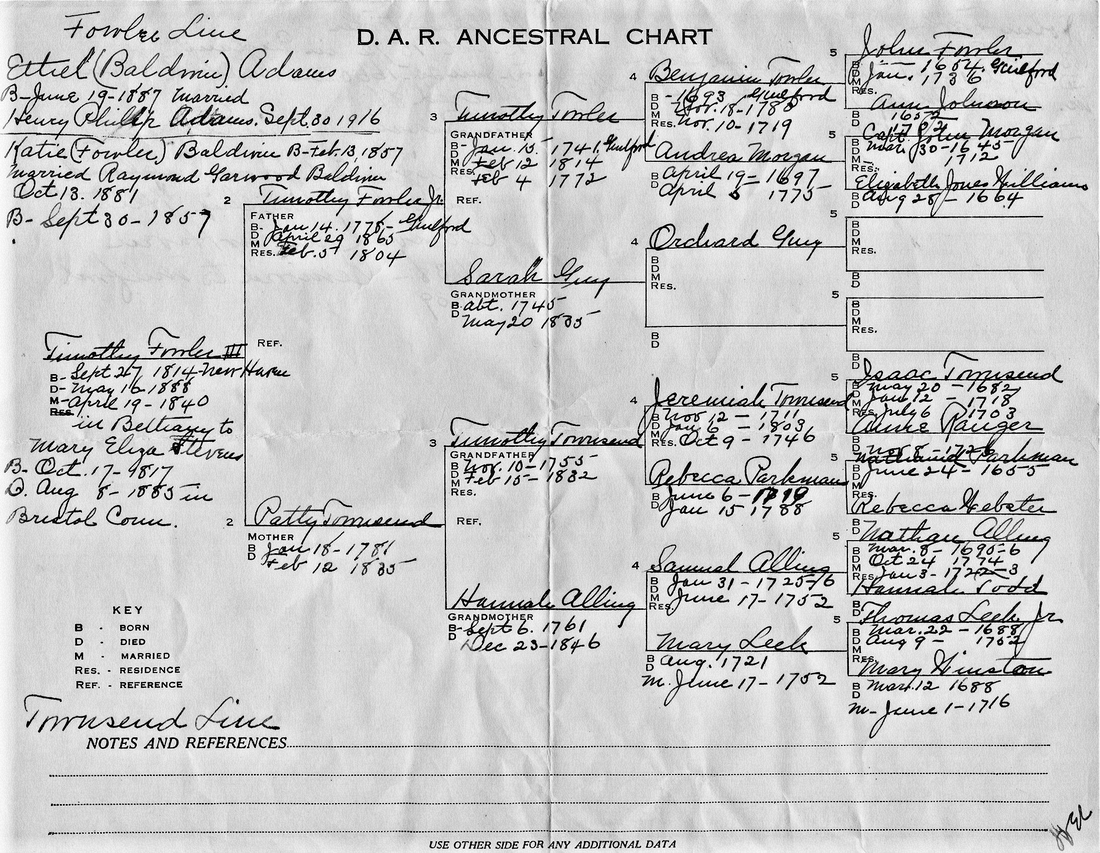 Fowler Line
D. A. R. ANCESTRAL CHART
Ethel (Baldwin) Adams
B-June 19-1887 Married
Henry Philip Adams. Sept. 30 1916
Katie (Fowler) Baldwin B-Feb. 13, 1857
Married Raymond Garwood Baldwin
Oct 13. 1881
B- Sept 30-1857
Timothy Fowler III
B- Sept 27, 1814-New Haven
D- May 16-1888
M- April 19-1840
Res.
in Bethany to
Mary Eliza Stevens
B- Oct. 17-1817
D. Aug 8-1885 in
Bristol Conn.
2
Timothy Fowler Jr.
FATHER
B- Jan 14. 1775- Guilford
D April 29 1865
M Feb. 5 1804
RES.
REF.
2
Patty Townsend
MOTHER
B Jan 18-1781
D Feb 12 1835
3
Timothy Fowler
GRANDFATHER
B- Jan. 13. 1741, Guilford
D Feb 12 1814
M Feb 4 1772
RES.
REF.
Sarah Guy
GRANDMOTHER
B abt. 1745
D May 20 1835
3
Timothy Townsend
GRANDFATHER
B Nov. 10-1755
D Feb 15-1832
M
RES.
REF.
Hannah Alling
GRANDMOTHER
B- Sept 6. 1761
D Dec 23-1846
4
Benjamin Fowler
B - 1693 Guilford
D
M Nov. 10-1719
RES.
Andrea Morgan
B April 19-1697
D April 5 1775
4
Orchard Guy
B
D
M
RES.
B
D
4
Jeremiah Townsend
B Nov 12 - 1711
D Jan 6 - 1803
M Oct 9 - 1746
RES.
Rebecca Parkman
B June 6 -
D Jan 15 1788
4
Samuel Alling
B Jan 31-1725/6
D
M June 17-1752
RES.
Mary Leek
B Aug. 1721
D
M. June 17-1752
5
John Fowler
B
D
M
RES.
Ann Johnson
B
D
5
Morgan
B
D
M
RES.
Elizabeth Jones Williams
B Aug 28-1664
D
5
B
D
M
RES.
B
D
5
B
D
M
RES.
B
D
5
Isaac Townsend
B May 20-1682
D Jan 12-1718
M July 6 1703
Anne Ranger
B
D
5
Nathaniel Parkman
June 24-1655
RES.
Rebecca Webster
B
D
5
Nathan Alling
B Mar. 8-1695-6
D Oct 24 1774
M Jan 3-
RES.
Hannah Todd
B
D
5
Thomas Leek Jr.
B Mar. 22-1688
D Aug 9-1752
M
RES.
Mary Winston
B Mar. 12 1688
D
M- June 1-1716
KEY
B - BORN
D - DIED
M - MARRIED
RES. - RESIDENCE
REF. - REFERENCE
Townsend Line
NOTES AND REFERENCES
USE OTHER SIDE FOR ANY ADDITIONAL DATA